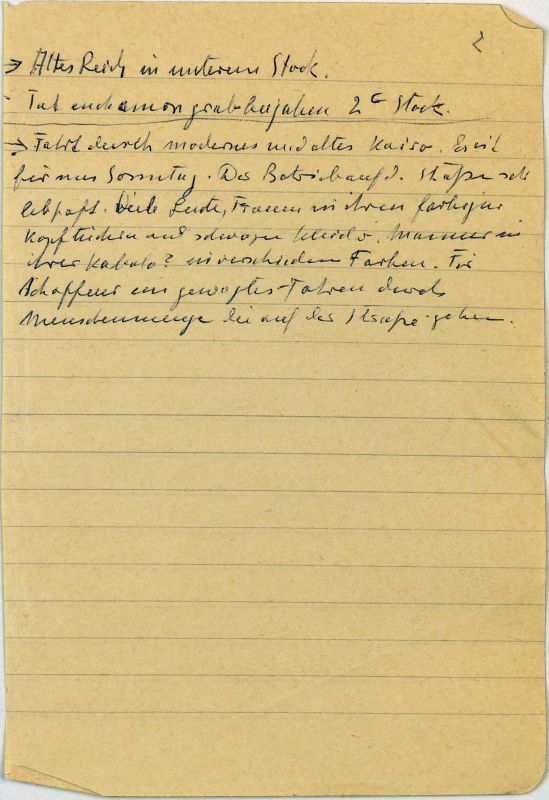 2
→ Altes Reich in unterem Stock.
Tut ench amon grabbeigaben 2e Stock.
→ Fahrt durch modernes und altes Kairo. Es ist
für uns Sonntag. Der Betrieb auf d. Straße seh
lebhaft. Viele Leute, Frauen in ihren farbigen
Kopftüchern und schwarzen Kleider. Männer in
ihrer Kabala? in verschieden Farben. Für
Schaffeur ein gewagtes Fahren durch
Menschenmenge die auf der Straße gehen.